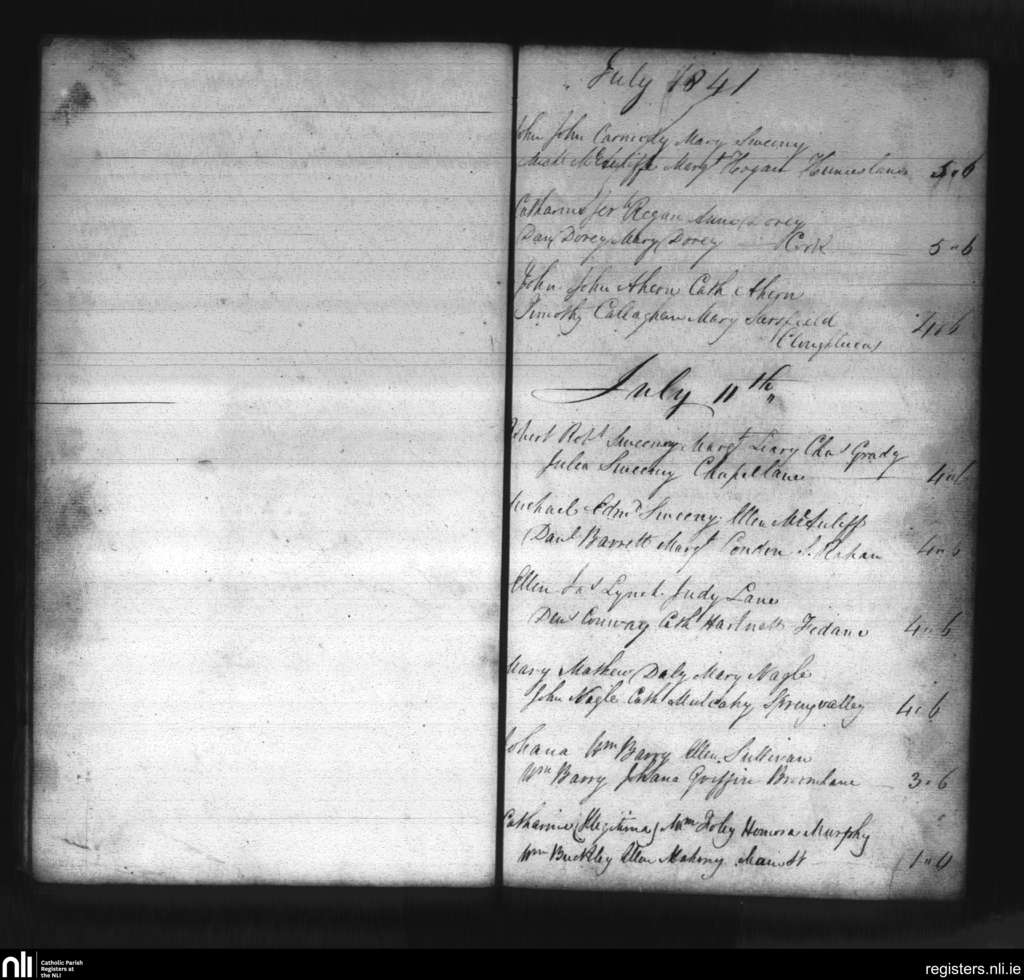 July 1841
John John Carmody Mary Sweeny
Margt Hogan 5 " 6
Catharine Jer Regan Anne Dorey
Danl Dorey Mary Dorey Cork 5 " 6
John John Ahern Cath Ahern
Timothy Callaghan Mary Sarsfield 4 " 6
Cloughlucas
July 11th
Robert Robt Sweeny Margt Leary Chas Grady
Julia Sweeny Chapellane 4 " 6
Michael Edmd Sweeny Ellen McAuliffe
Danl Barrett Margt Condon S. Rahan 4 " 6
Ellen Jas Lynch Judy Lane
Dens Conway Cath Hartnett 4 " 6
Mary Mathew Daly Mary Nagle
John Nagle Cath Mulcahy Springvalley 4 " 6
Johana Wm Barry Ellen Sullivan
Wm Barry Johana Griffin 3 " 6
Catharine (Illegitima) Wm Foley Honora Murphy
Wm Buckley Ellen Mahony Main St 1 " 0
nli
Catholic Parish
Registers at
the NLI
registers.nli.ie